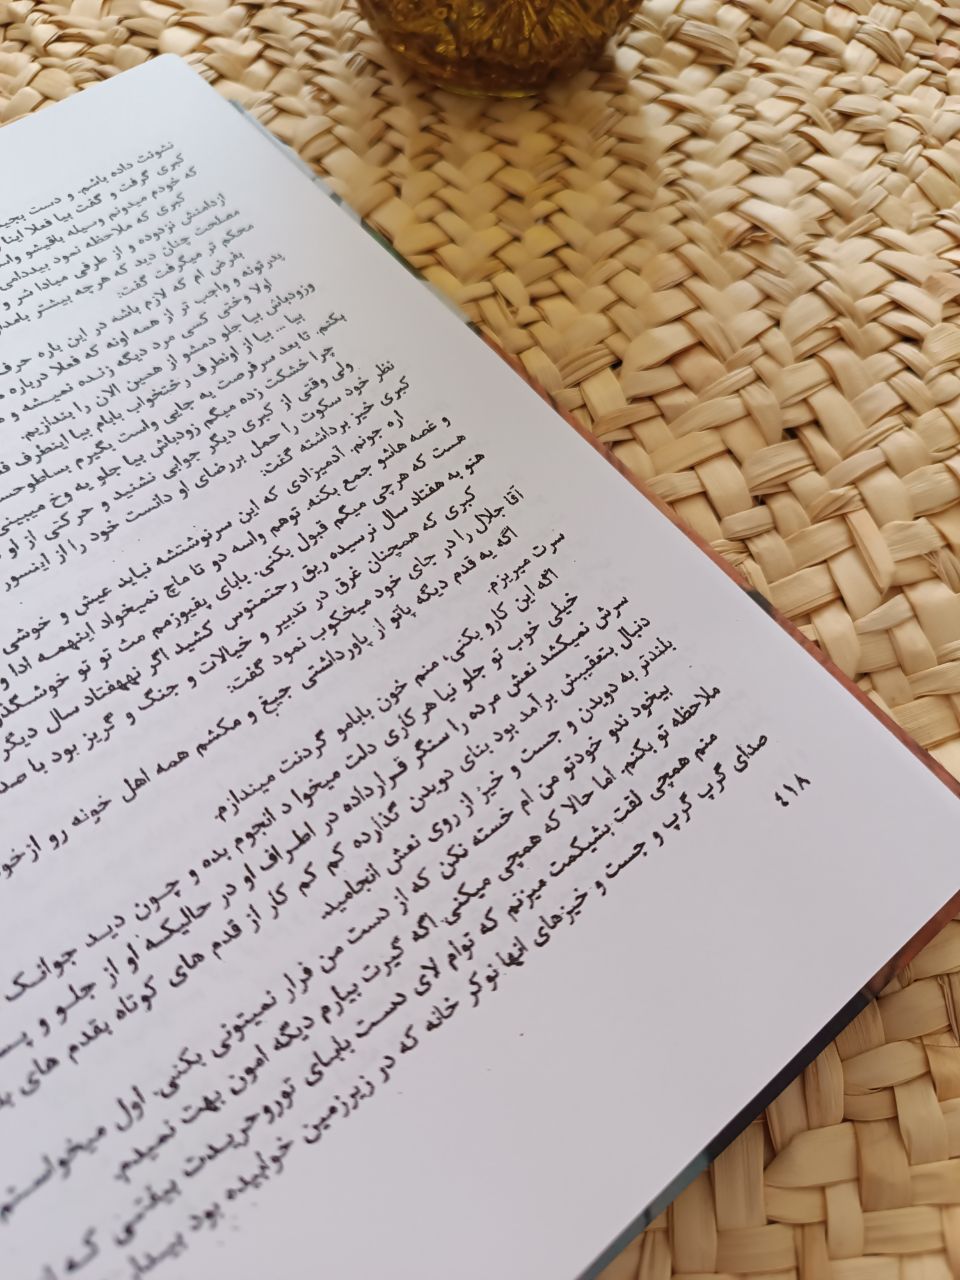 نشونت داده باشم. و دست بجیب
کبری گرفت و گفت بیا فعلا اینا
که خودم میدونم وسیله باقیشو واس
کبری که ملاحظه نمود بیدادی
ازدامنش نزدوده و از طرفی مبادا شر و
مصلحت چنان دید که هرچه بیشتر بامدار
محکم تو میگرفت گفت:
بفرض ام که لازم باشه در این باره حرف
پدرتونه و واجب تر از همه اونه که فعلا درباره
اولا وختی کسی مرد دیگه زنده نمیشه و
وزودباش بیا جلو دمشو از همین الان را بندازیم.
بیا... بیا از اونطرف رختخواب بابام بیا اینطرف
بکنم. تا بعد سرفرصت یه جایی واست بگیرم بساطو
چرا خشکت زده میگم زودباش بیا جلو یه وخ میبینی
ولی وقتی از کبری دیگر جوابی نشنید و حرکتی از او
نظر خود سکوت را حمل بررضای او دانست خود را از اینسور
کبری خیز برداشته گفت:
اره جونم. آدمیزادی که این سرنوشتشه نباید عیش و خوشی
و غصه هاشو جمع بکنه. توهم واسه دو تا ماچ نمیخواد اینهمه ادا و
هست که هرچی میگم قبول بکنی. بابای پفیوزمم مث تو تو خوشگذر
هنو به هفتاد سال نرسیده ریق رحمتوس کشید اگر نههفتاد سال دیگر
کبری که همچنان غرق در تدبیر و خیالات و جنگ و گریز بود با صد
آقا جلال را در جای خود میخکوب نمود گفت:
اگه یه قدم دیگه پاتو از پاورداشتی جیغ و مکشم همه اهل خونه رو ازخو
سرت میریزم.
اگه این کارو بکنی، منم خون بابامو گردنت میندازم.
خیلی خوب تو جلو نیا هر کاری دلت میخواد انجوم بده و چون دید جوانک
سرش نمیکشد نعش مرده را سنگر قرارداده در اطراف او در حالیکه او از جلو و پس
دنبال بتعقیبش برآمد بود بنای دویدن گذارده کم کم کار از قدم های کوتاه بقدم های
بلندتر به دویدن و جست و خیز از روی نعش انجامید.
بیخود ندو خودتو من ام خسته نکن که از دست من فرار نمیتونی بکنی. اول میخواستم
ملاحظه تو بکنم. اما حالا که همچی میکنی. اگه گیرت بیارم دیگه امون بهت نمیدم.
منم همچی لقت بشیکمت میزنم که توام لای دست بابای توروحریدت بیفتی که
صدای گرپ گرپ و جست و خیزهای آنها نوکر خانه که در زیرزمین خوابیده بود بیدار
٤١٨